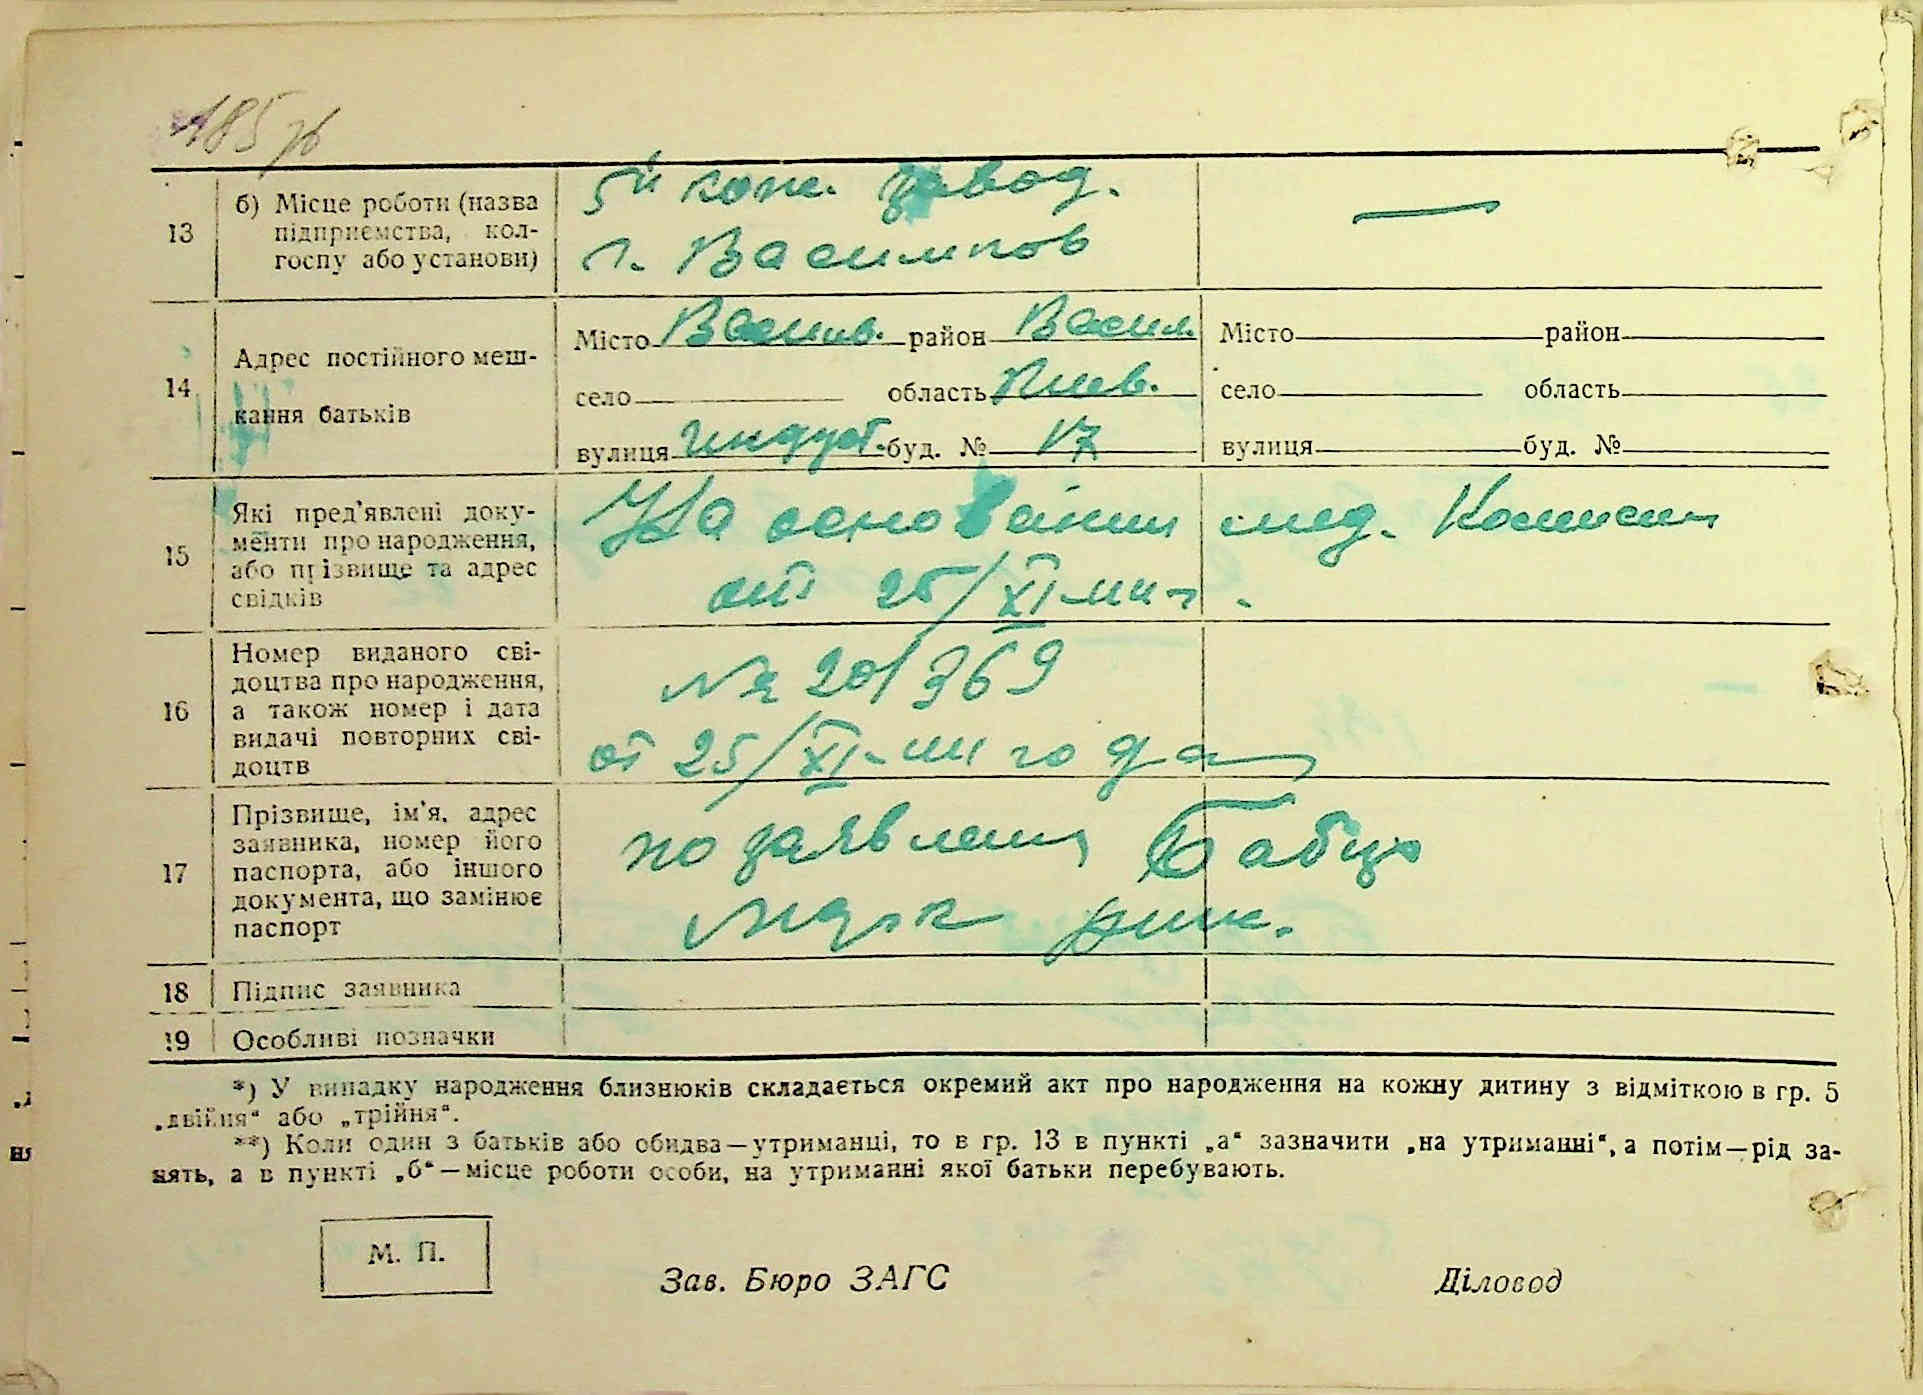 185 зв
13 б) Місце роботи (назва підприємства, кол-госпу або установи) 5й кож. завод. —
г. Васильков
14 Адрес постійного меш-кання батьків
Місто Васильк. район Васил. Місто район
село область Киев. село область
вулиця Индуст. буд. № 17 вулиця буд. №
15 Які пред'явлені доку-менти про народження, або прізвище та адрес свідків
На основании мед. Комисии
от 25/XI
16 Номер виданого сві-доцтва про народження, а також номер і дата видачі повторних сві-доцтв
№ 201369
от 25/XI года
17 Прізвище, ім'я, адрес заявника, номер його паспорта, або іншого документа, що замінює паспорт
по заявлению
18 Підпис заявника
19 Особливі позначки
*) У випадку народження близнюків складається окремий акт про народження на кожну дитину з відміткою в гр. 5
„двійня“ або „трійня“.
**) Коли один з батьків або обидва—утриманці, то в гр. 13 в пункті „а“ зазначити „на утриманні“, а потім—рід за-
нять, а в пункті „б“—місце роботи особи, на утриманні якої батьки перебувають.
М. П.
Зав. Бюро ЗАГС Діловод